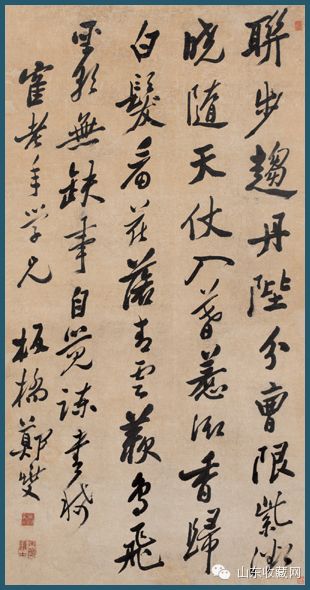 聯步趨丹陛分曹限紫微
曉隨天仗入暮惹御香歸
白髮看花落青雲羡鳥飛
聖朝無缺事自覺諫書稀
寉老年學兄 板橋鄭燮
山东收藏网